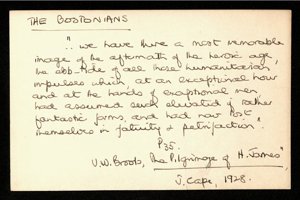 THE BOSTONIANS
".. we have there a most memorable
image of the aftermath of the heroic age,
the ebb-tide of all those humanitarian
impulses which at an exceptional hour
and at the hands of exceptional men
had assumed such elevated if rather
fantastic forms, and had now lost
themselves in fatuity & petrifaction."
P35.
V.W. Brooks, The Pilgrimage of H. James"
J. Cape, 1928.